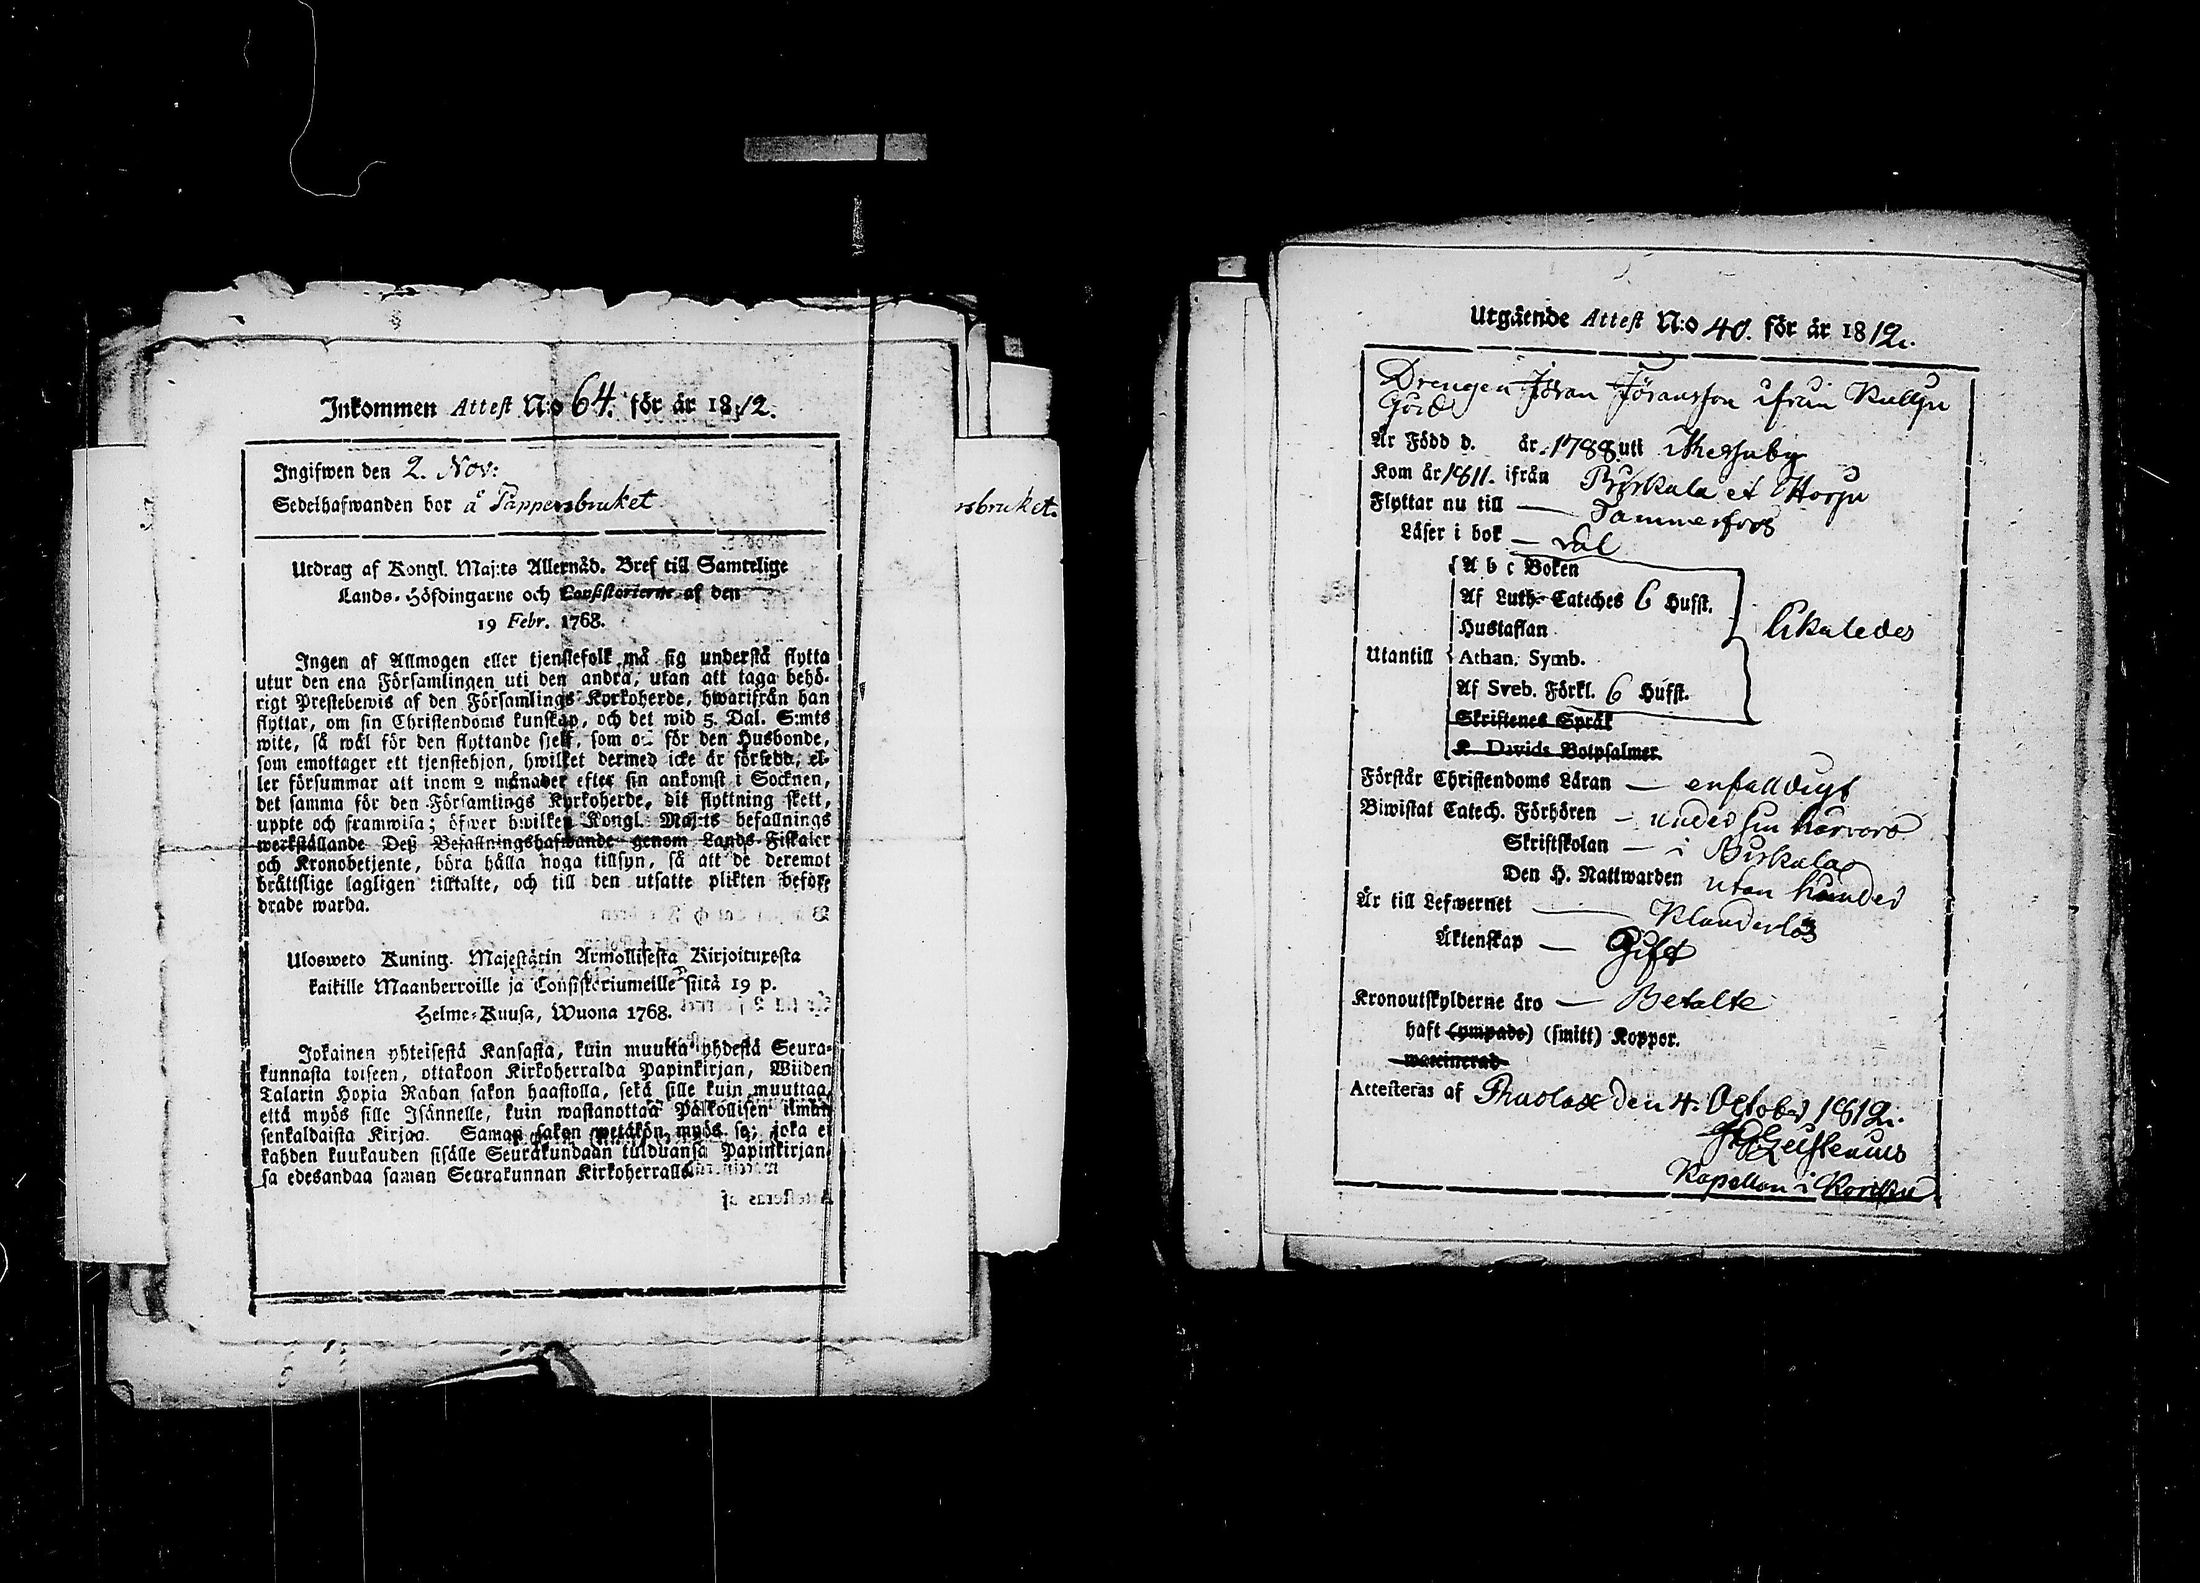 Inkommen Attest N:o 64. för år 1812.
Ingifwen den 2. Nov:
Sedelhafwanden bor å Pappersbruket
rsbruket.
Utdrag af Kongl. Maj:ts Allernåd. Bref till Samtelige
Lands-Höfdingarne och Consistorierne af den
19 Febr. 1768.
Ingen af Allmogen eller tjenstefolk må sig understå flytta
utur den ena Församlingen uti den andra, utan att taga behö-
rigt Prestebewis af den Församlings Kyrkoherde, hwarifrån han
flyttar, om sin Christendoms kunskap, och det wid 5. Dal. S:mts
wite, så wäl för den flyttande sjelf, som ock för den Husbonde,
som emottager ett tjenstehjon, hwilket dermed icke är försedd, el-
ler försummar att inom 2 månader efter sin ankomst i Socknen,
det samma för den Församlings Kyrkoherde, dit flyttning skett,
uppte och framwisa; öfwer hwilken Kongl. Maj:ts befallnings
werkställande Deß Befallningshafwande genom Lands-Fiskaler
och Kronobetjente, böra hålla noga tillsyn, så att de deremot
bråttslige lagligen tilltalte, och till den utsatte plikten beför-
drade warda.
Ulosweto Kuning. Majestätin Armollisesta Kirjoituxesta
kaikille Maanherroille ja Consistoriumeille siitä 19 p.
Helme-Kuusa, Wuona 1768.
Jokainen yhteisestä Kansasta, kuin muutta yhdestä Seura-
kunnasta toiseen, ottakoon Kirkoherralda Papinkirjan, Wiiden
Talarin Hopia Rahan sakon haastolla, sekä sille kuin muuttaa,
että myös sille Isännelle, kuin wastanottaa Palkollisen ilman
senkaldaista Kirjaa. Saman sakon wetäkön myös se, joka ei
kahden kuukauden sisälle Seurakundaan tulduansa Papinkirjan-
sa edesandaa saman Seurakunnan Kirkoherralle.
Utgående Attest N:o 40. för år 1812.
Drengen Jöran Jöransson ifrån Kullju
Gård
År Född d. år 1788 uti Messuby
Kom år 1811. ifrån Birkala et Harju
Flyttar nu till — Tammerfors
Läser i bok — väl
A b c Boken
Af Luth. Cateches 6 Hufst.
Hustaflan
likaledes
Utantill Athan. Symb.
Af Sveb. Förkl. 6 Hufst.
Skriftenes Språk
K. Davids Botpsalmer.
Förstår Christendoms Läran — enfalldigt
Biwistat Catech. Förhören — under sin härvaro
Skriftskolan — i Birkala
Den H. Nattwarden utan hinder
Är till Lefwernet — Klanderlös
Äktenskap — Gift
Kronoutskylderne äro — Betalte
haft (ympade) (smitt) Koppor.
waccinerad
Attesteras af den 4. October 1812.
Kapellan i